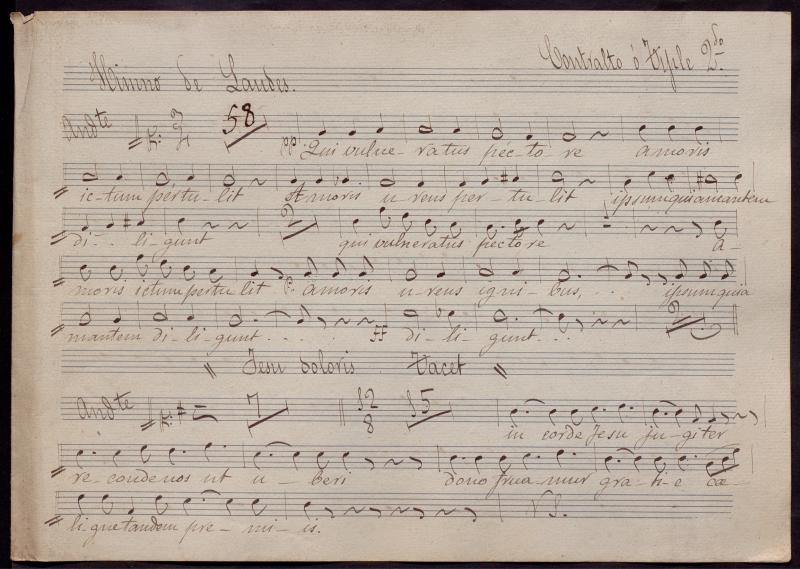 Contralto ó Tiple 2.do
Himno de Laudes.
And.te 3 2 58 pp. Qui vulne-ratus pec-to-re amoris
ictum pertu-lit Amoris u-rens per-tu-lit ipsum quia mantem
di-..li-gunt 2 qui vulneratus pectore a-
moris ictum pertulit p. amoris u-rens igni-bus, . ipsum quia
mantem di-li-gunt.... ff di-li-gunt... 2
" Jesu doloris. Vacet "
And.te 7 12 8 15 in corde Jesu ju-giter
re-conde nos ut u-beri dono frua-mur gra-ti-e cæ-
lique tandem pre-mi-is. V.S.